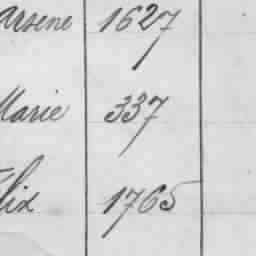 Arsene 1627
Marie 337
Felix 1765